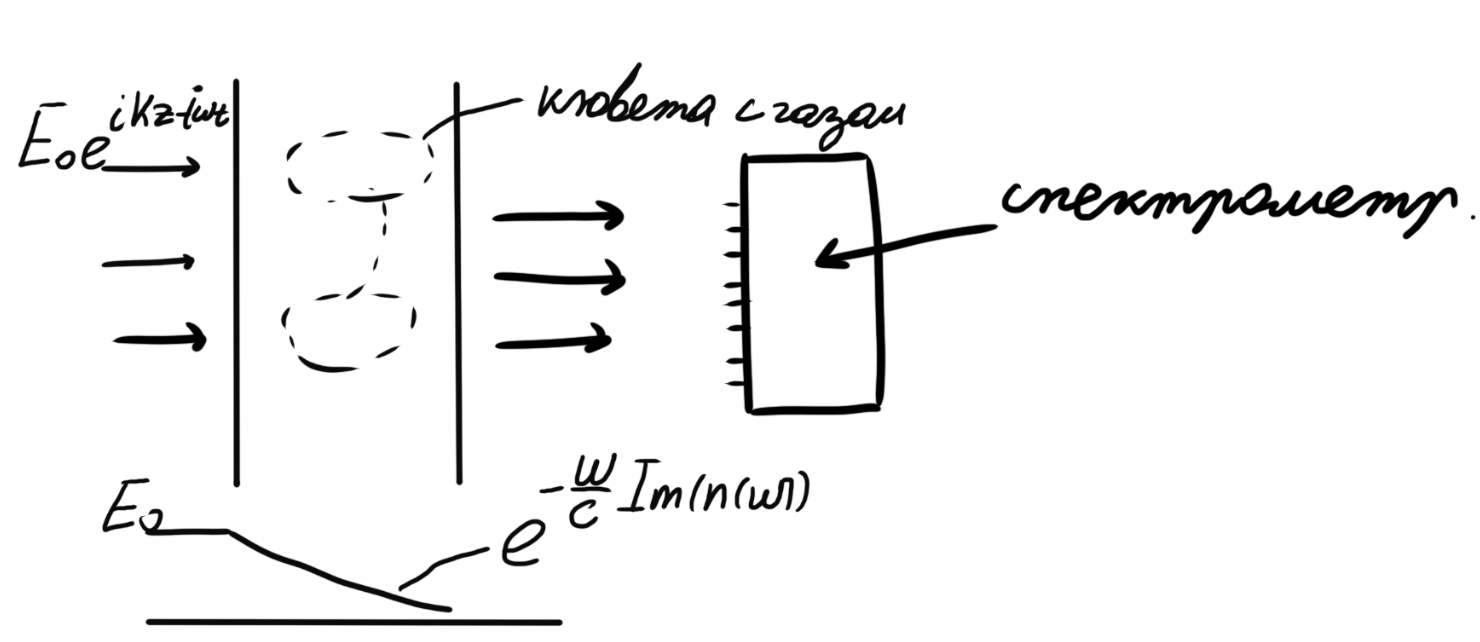 E₀e^{ikz-iωt}
кювета с газом
спектрометр.
E₀
e^{-\frac{ω}{c} Im(n(ω))}